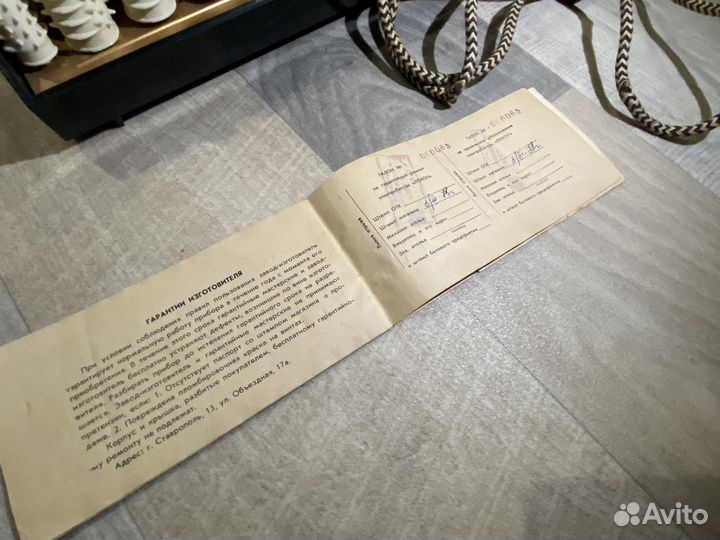 ГАРАНТИИ ИЗГОТОВИТЕЛЯ
При условии соблюдения правил пользования завод-изготовитель
гарантирует нормальную работу прибора в течение года с момента его
приобретения. В течение этого срока гарантийные мастерские и завод-
изготовитель бесплатно устраняют дефекты, возникшие по вине изгото-
вителя. Разбирать прибор до истечения гарантийного срока не разре-
шается. Завод-изготовитель и гарантийные мастерские не принимают
претензии, если: 1. Отсутствует паспорт со штампом магазина о про-
даже. 2. Повреждена пломбировочная краска на винтах.
Корпус и крышка, разбитые покупателем, бесплатному гарантийно-
му ремонту не подлежат.
Адрес: г. Ставрополь, 13, ул. Объездная, 17а.
Линия отреза
ТАЛОН № 1
000063
на гарантийный ремонт
электробигуди
Штамп ОТК
Штамп магазина
Механик ателье
Владелец и его адрес
Зав. ателье
подпись
и штамп бытового предприятия
ТАЛОН №
000063
на техническое обслуживание
электробигуди
Штамп ОТК
Штамп магазина
Механик ателье
Владелец, его адрес
Зав. ателье
подпись
и штамп бытового предприятия
Avito